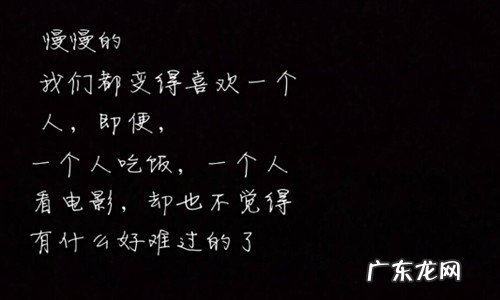 慢慢的
我们都变得喜欢一个
人，即便，
一个人吃饭，一个人
看电影，却也不觉得
有什么好难过的了
广东龙网